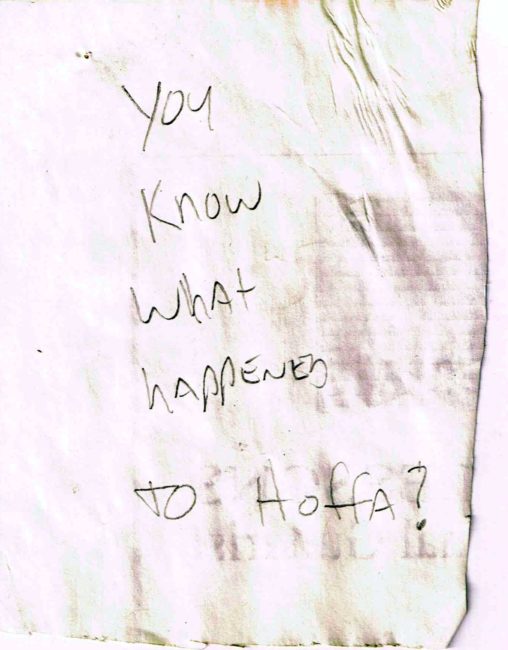 You
Know
What
happened
to Hoffa?